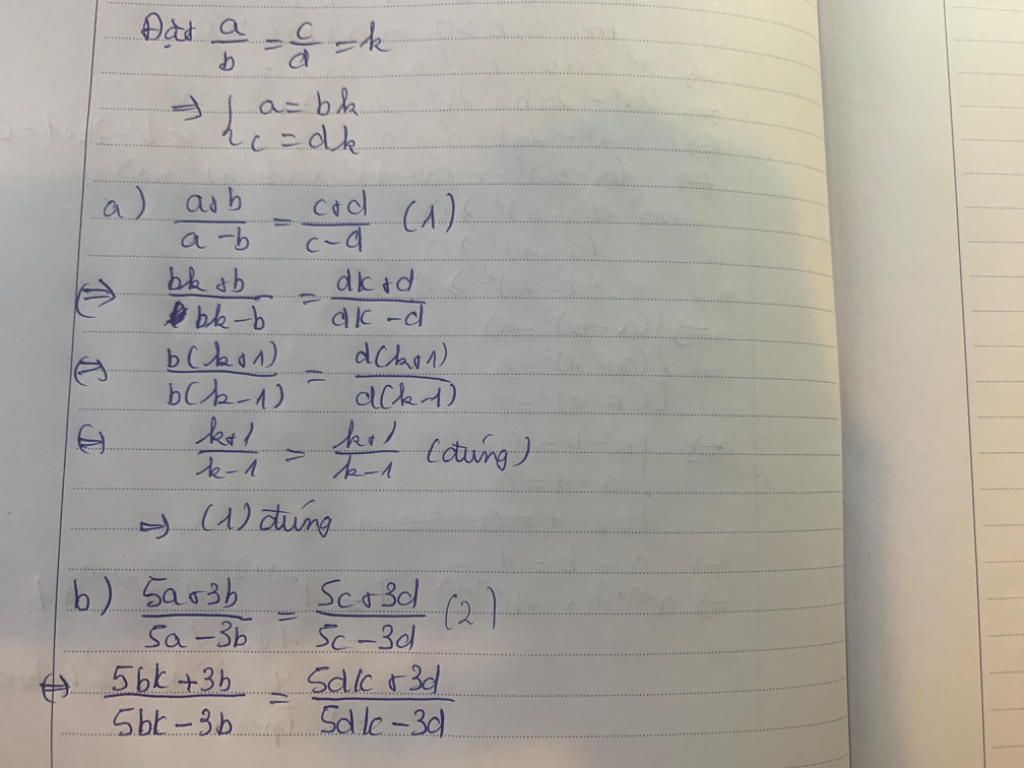 Đặt a/b = c/d = k
⇒ { a = bk
c = dk
a) (a+b)/(a-b) = (c+d)/(c-d) (1)
⇔ (bk+b)/(bk-b) = (dk+d)/(dk-d)
⇔ b(k+1)/b(k-1) = d(k+1)/d(k-1)
⇔ (k+1)/(k-1) = (k+1)/(k-1) (đúng)
⇒ (1) đúng
b) (5a+3b)/(5a-3b) = (5c+3d)/(5c-3d) (2)
⇔ (5bk+3b)/(5bk-3b) = (5dk+3d)/(5dk-3d)